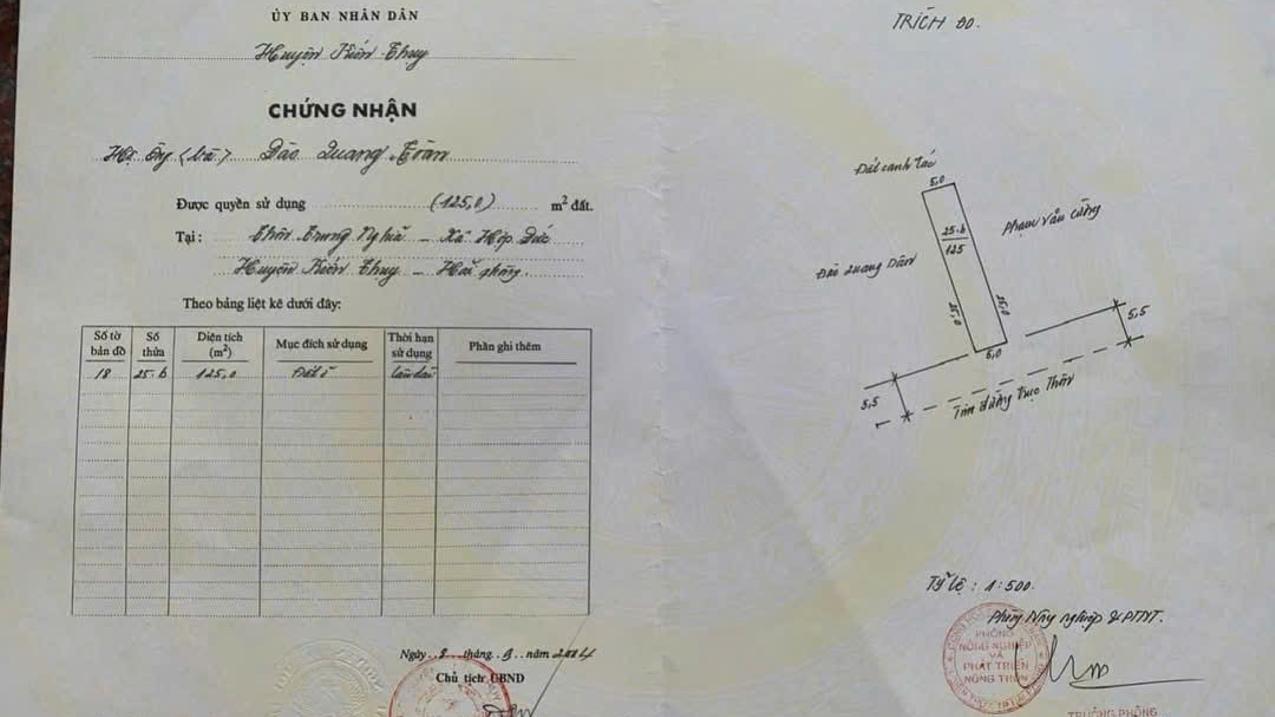 ỦY BAN NHÂN DÂN
Huyện Kiến Thụy
CHỨNG NHẬN
Hộ Ông (bà) Đào Quang
Được quyền sử dụng (125,0) m² đất.
Tại: Thôn Trung Nghĩa - Xã Hợp Đức
Huyện Kiến Thụy - Hải phòng.
Theo bảng liệt kê dưới đây:
Số tờ bản đồ Số thửa Diện tích (m²) Mục đích sử dụng Thời hạn sử dụng Phần ghi thêm
18 25-b 125,0 Đất ở Lâu dài
Ngày 8 tháng 9 năm
Chủ tịch UBND
TRÍCH ĐO.
Đất canh tác
5,0
Phạm Văn
25-b
125
Đào Quang
25,0
25,0
5,0
5,5
5,5
Tim đường trục Thôn
Tỷ lệ: 1:500.
Phòng Nông nghiệp & PTNT.
PHÒNG
NÔNG NGHIỆP
VÀ
PHÁT TRIỂN
NÔNG THÔN
TRƯỞNG PHÒNG